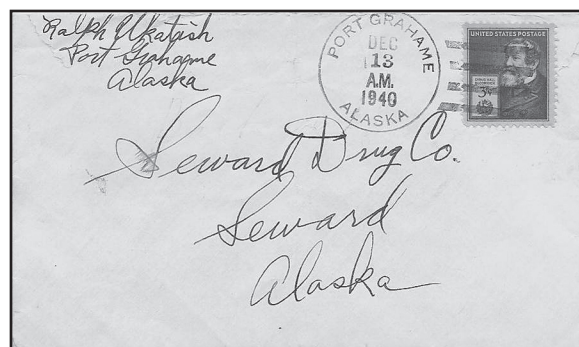 Ralph Ukatish
Port Grahame
Alaska
PORT GRAHAME
DEC
13
A.M.
1940
ALASKA
UNITED STATES POSTAGE
3¢
Seward Drug Co.
Seward
Alaska